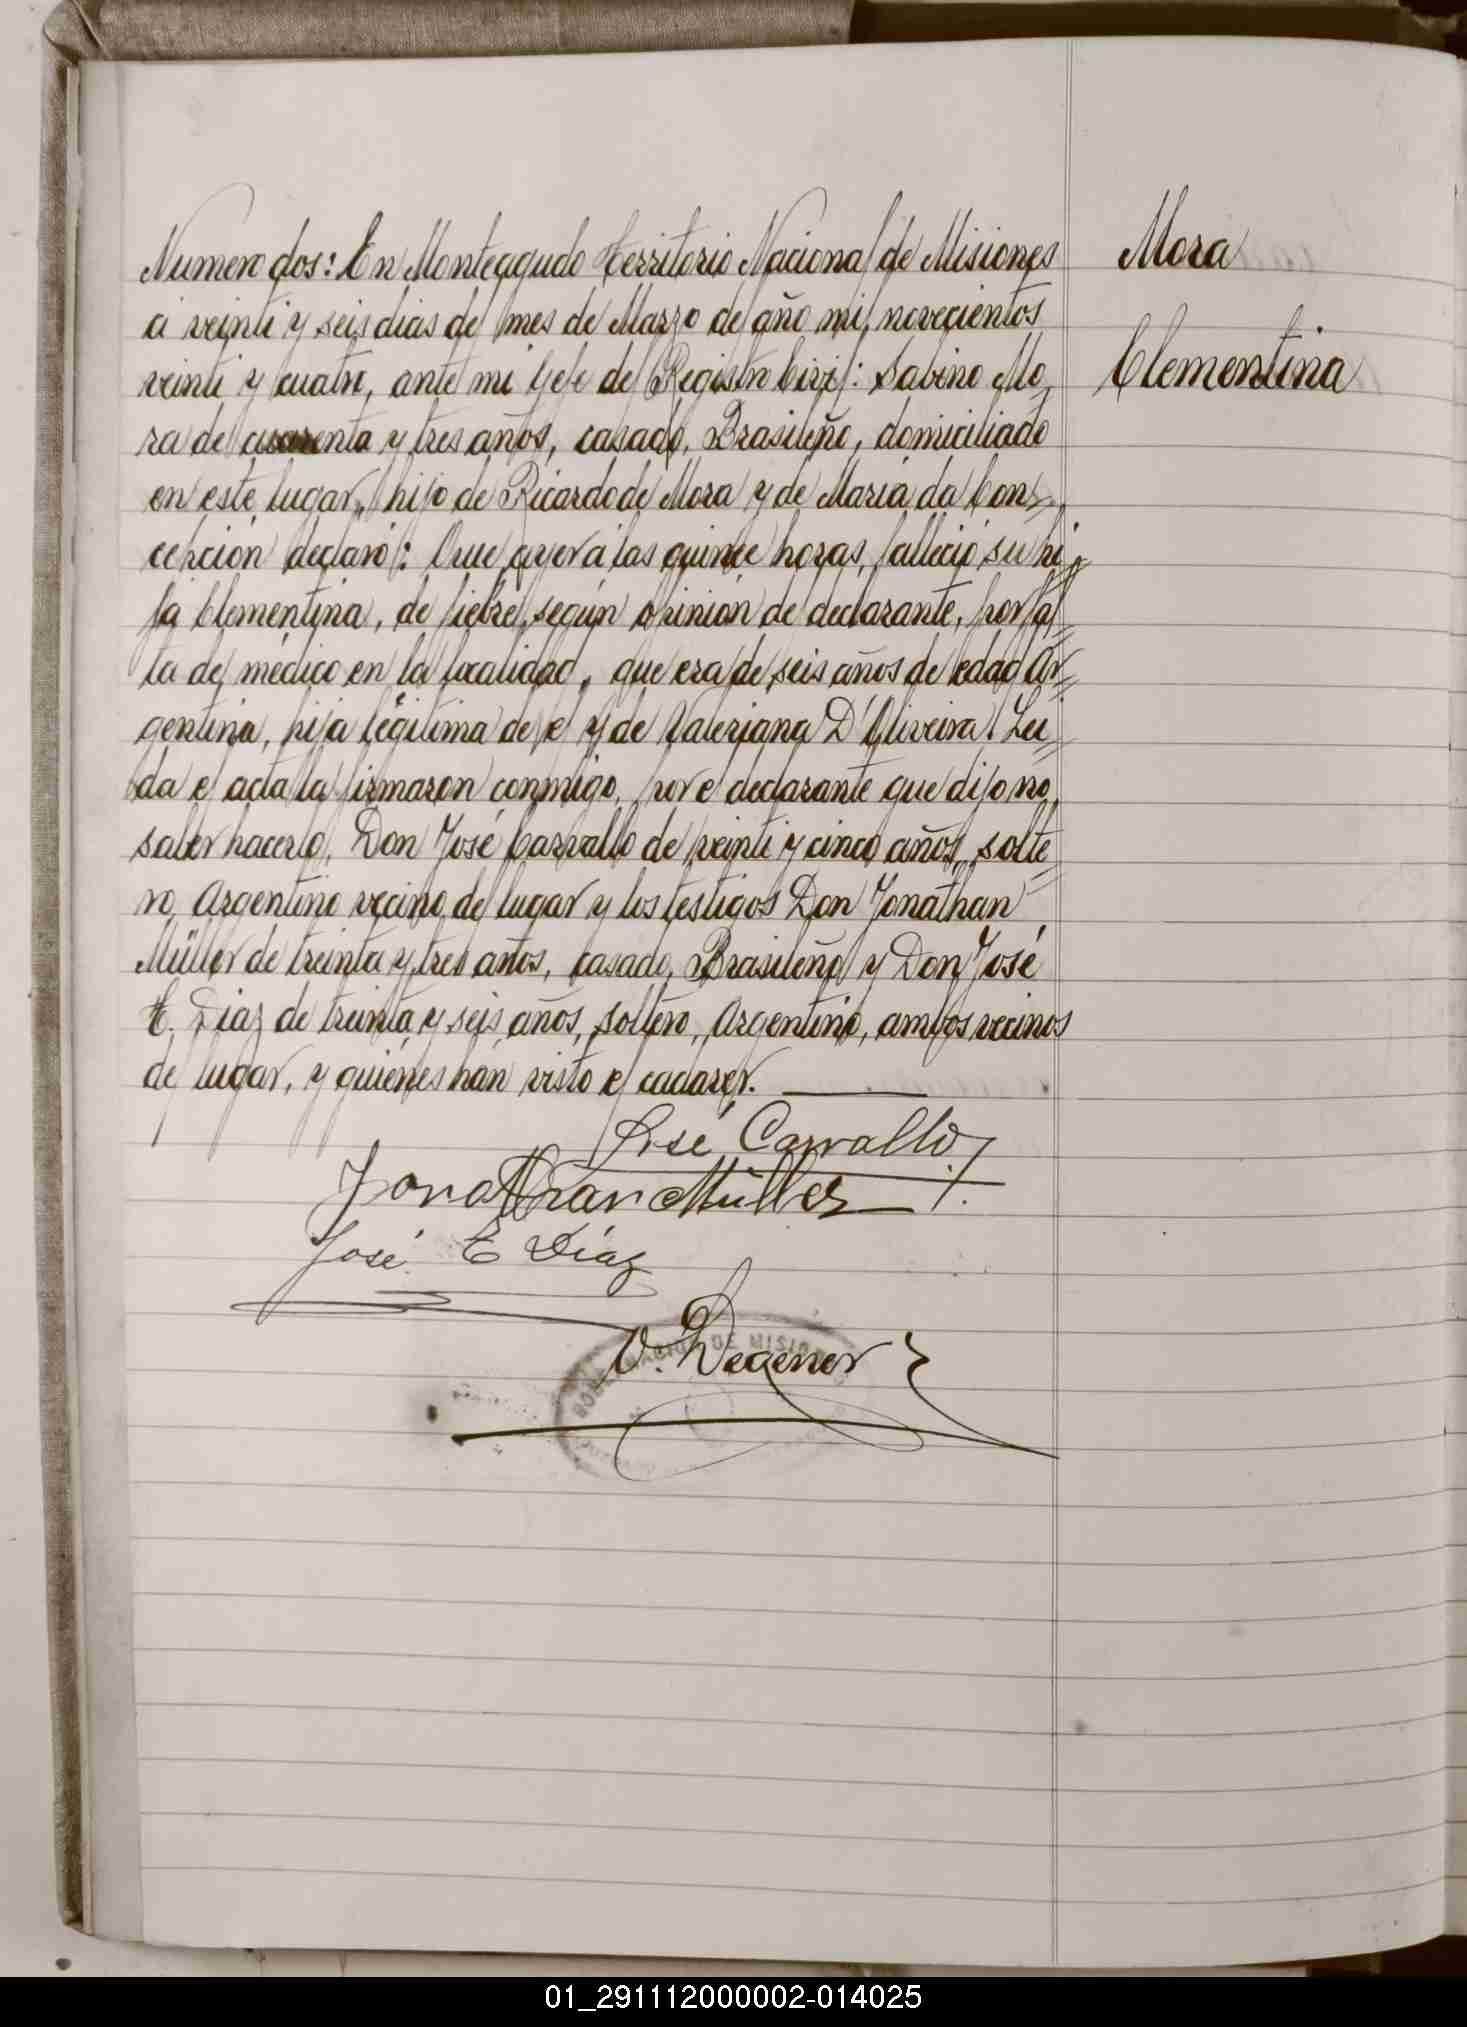 Numero dos: En Monteagudo territorio Nacional de Misiones
a veinti y seis dias del mes de Marzo del año mil novecientos
veinti y cuatro, ante mi Gefe del Registro Civil: Savino Mo-
ra de cuarenta y tres años, casado, Brasileño, domiciliado
en este lugar, hijo de Ricardo de Mora y de Maria da Con-
cepcion declaró: Que ayer á las quince horas, falleció su hi-
ja Clementina, de fiebre, según opinion del declarante, por fal-
ta de médico en la localidad, que era de seis años de edad Ar-
gentina, hija légitima de el y de Valeriana D'Oliveira. Lei-
da el acta la firmaron conmigo, por el declarante que dijo no
saber hacerlo, Don José Carvallo de veinti y cinco años, solte-
ro, Argentino vecino del lugar y los testigos Don Jonathan
Müller de treinta y tres años, casado, Brasileño y Don José
E. Diaz de treinta y seis años, soltero, Argentino, ambos vecinos
del lugar, y quiénes han visto el cadaver.
José Carvallo
Jonathan Müller
José E Diaz
O. Degener
Mora
Clementina
01_291112000002-014025